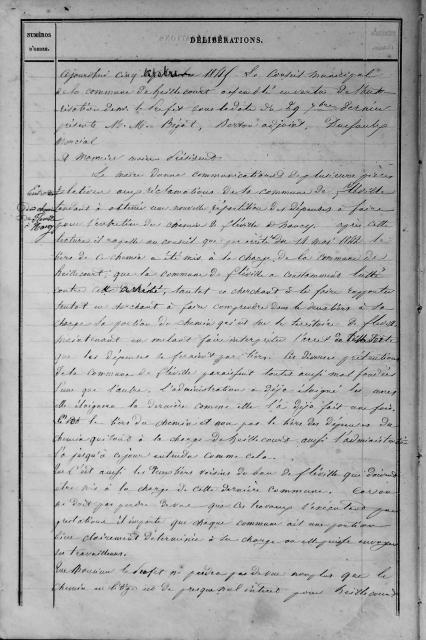 NUMÉROS
D'ORDRE.
DÉLIBÉRATIONS.
Aujourd'hui cinq octobre 1845 Le Conseil municipal
de la commune de heillecourt assemblé en vertu de l'auto
risation de M. le Préfet sous la date du 29 7bre dernier
présents M. M.
adjoint,
Morcial
maire Président
Le maire donne communication de plusieurs pièces
relatives aux réclamations de la commune de fléville
tendant à obtenir une nouvelle répartition des dépenses à faire
pour l'entretien du chemin de fléville à Nancy. après cette
lecture il rappelle au conseil que par arrêté du 14 mai 1842 le
tiers de ce chemin a été mis à la charge de la commune de
heillecourt; que la commune de fléville a constamment lutté
contre cet arrêté, tantôt en cherchant à le faire rapporter
tantôt en cherchant à faire comprendre dans le tiers à sa
charge la portion de chemin qui est sur le territoire de fléville
maintenant en voulant faire interpréter l'arrêté
que les dépenses se feraient par tiers. les diverses prétentions
de la commune de fléville paraissent toutes aussi mal fondées
l'une que l'autre. l'administration a déjà éloigné les unes
elle éloignera la dernière comme elle l'a déjà fait une fois.
le tiers du chemin et non pas le tiers des dépenses du
chemin qui est à la charge de heillecourt, aussi l'administration
l'a jusqu'à ce jour entendu comme cela.
que c'est aussi les deux tiers voisins du ban de fléville qui doivent
être mis à la charge de cette dernière commune. Car on
ne doit pas perdre de vue que ces travaux s'exécutent par
prestations il importe que chaque commune ait une portion
bien clairement déterminée à sa charge où elle puisse envoyer
ses travailleurs.
Que Monsieur le Préfet ne perdra pas de vue non plus que le
chemin en litige est de presque nul intérêt pour heillecourt